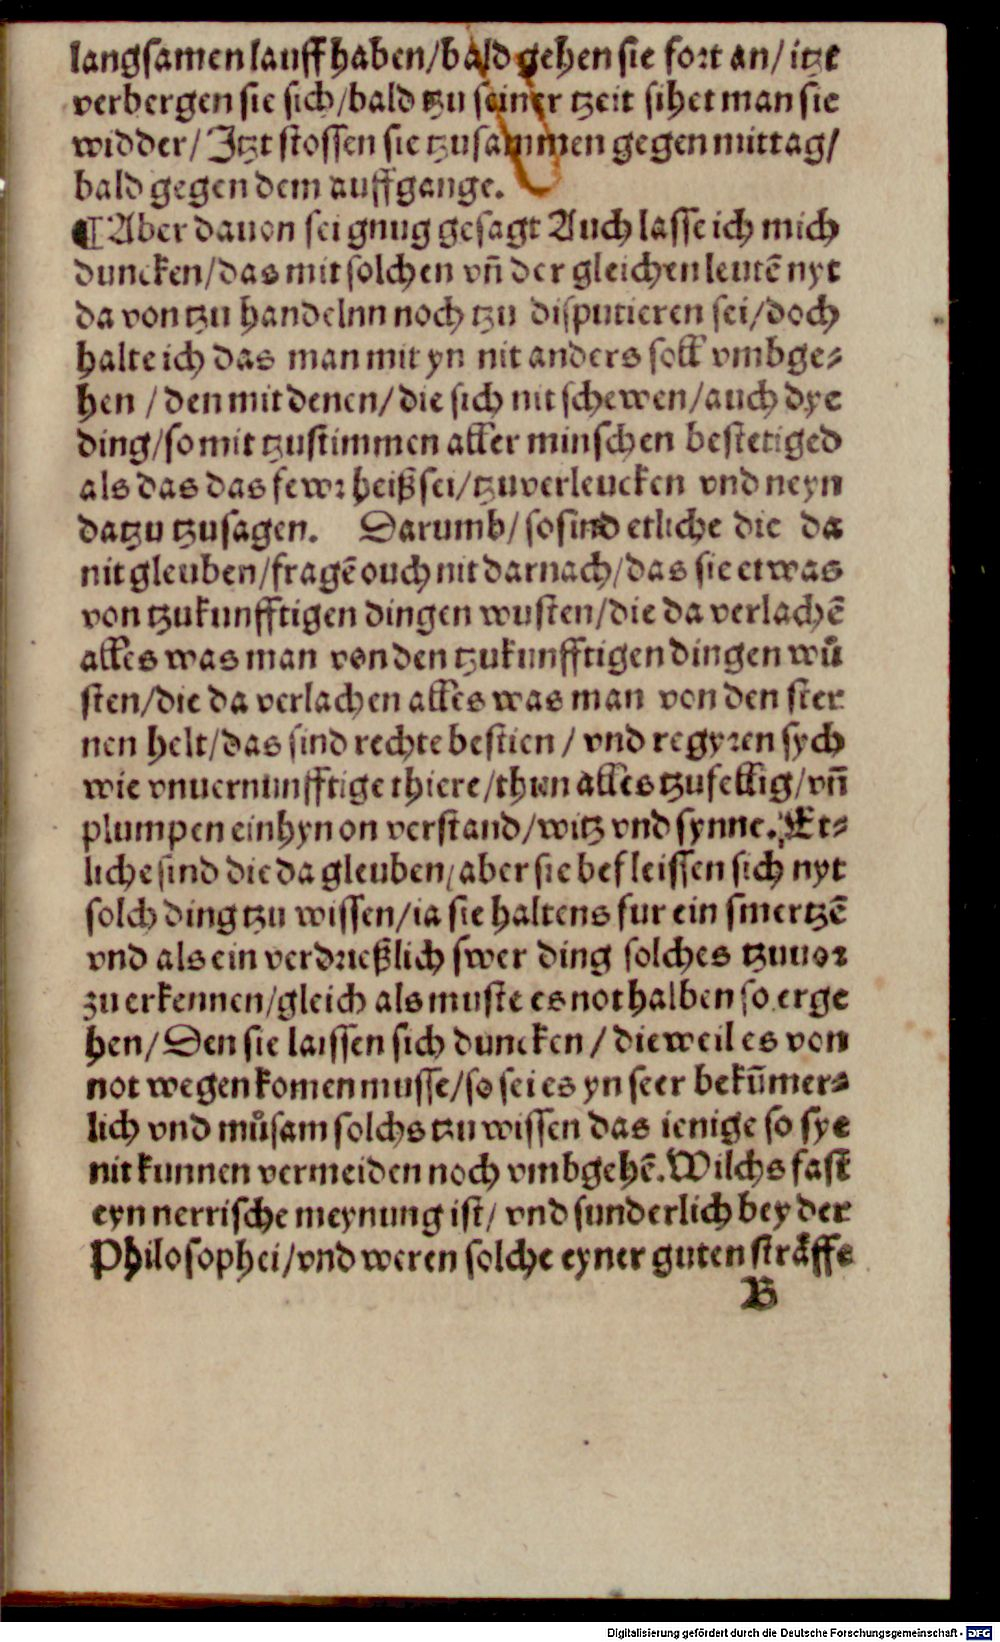 langsamen lauff haben/bald gehen sie fort an/ itzt
verbergen sie sich/bald tzu seiner tzeit sihet man sie
widder/ Jtzt stossen sie tzusammen gegen mittag/
bald gegen dem auffgange.
¶ Aber dauon sei gnug gesagt Auch lasse ich mich
duncken/das mit solchen vn̄ der gleichen leutē nyt
da von tzu handelnn noch tzu disputieren sei/doch
halte ich das man mit yn nit anders soll vmbge⸗
hen / den mit denen/ die sich nit schewen/auch dye
ding/so mit tzustimmen aller minschen bestetiged
als das das fewꝛ heiß sei/tzuverleucken vnd neyn
datzu tzusagen. Darumb/ so sind etliche die da
nit gleuben/fragē ouch nit darnach/das sie etwas
von tzukunfftigen dingen wusten/die da verlachē
alles was man von den tzukunfftigen dingen wuͦ
sten/die da verlachen alles was man von den ster
nen helt/das sind rechte bestien / vnd regyꝛen sych
wie vnuernunfftige thiere/thun alles tzufellig/vn̄
plumpen einhyn on verstand/witz vnd synne. Et⸗
liche sind die da gleuben/aber sie befleissen sich nyt
solch ding tzu wissen/ia sie haltens fur ein smertzē
vnd als ein verdꝛießlich swer ding solches tzuuoꝛ
zu erkennen/gleich als muste es not halben so erge
hen/ Den sie laissen sich duncken / die weil es von
not wegen komen musse/so sei es yn seer bekūmer⸗
lich vnd muͦsam solchs tzu wissen das ienige so sye
nit kunnen vermeiden noch vmbgehē. Wilchs fast
eyn nerrische meynung ist/ vnd sunderlich bey der
Philosophei/vnd weren solche eyner guten straͤffe
B
Digitalisierung gefördert durch die Deutsche Forschungsgemeinschaft - DFG